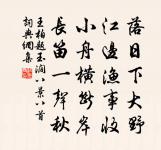 落日下大野
江邊漁事收
小舟橫斷岸
長笛一聲秋
王柏題玉澗八景八首
詞典網集